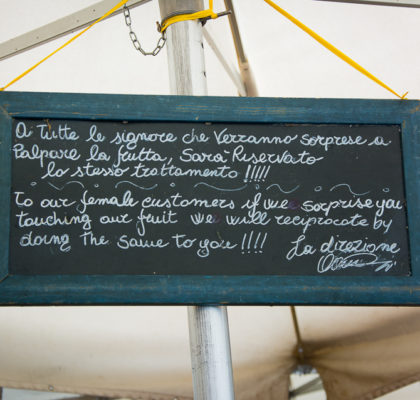 A Tutte le signore che Verranno sorprese a
Palpare la frutta, Sarà Riservato
lo stesso trattamento !!!!!
To our female customers if we sorprise you
touching our fruit we will reciprocate by
doing the same to you !!!!
La direzione